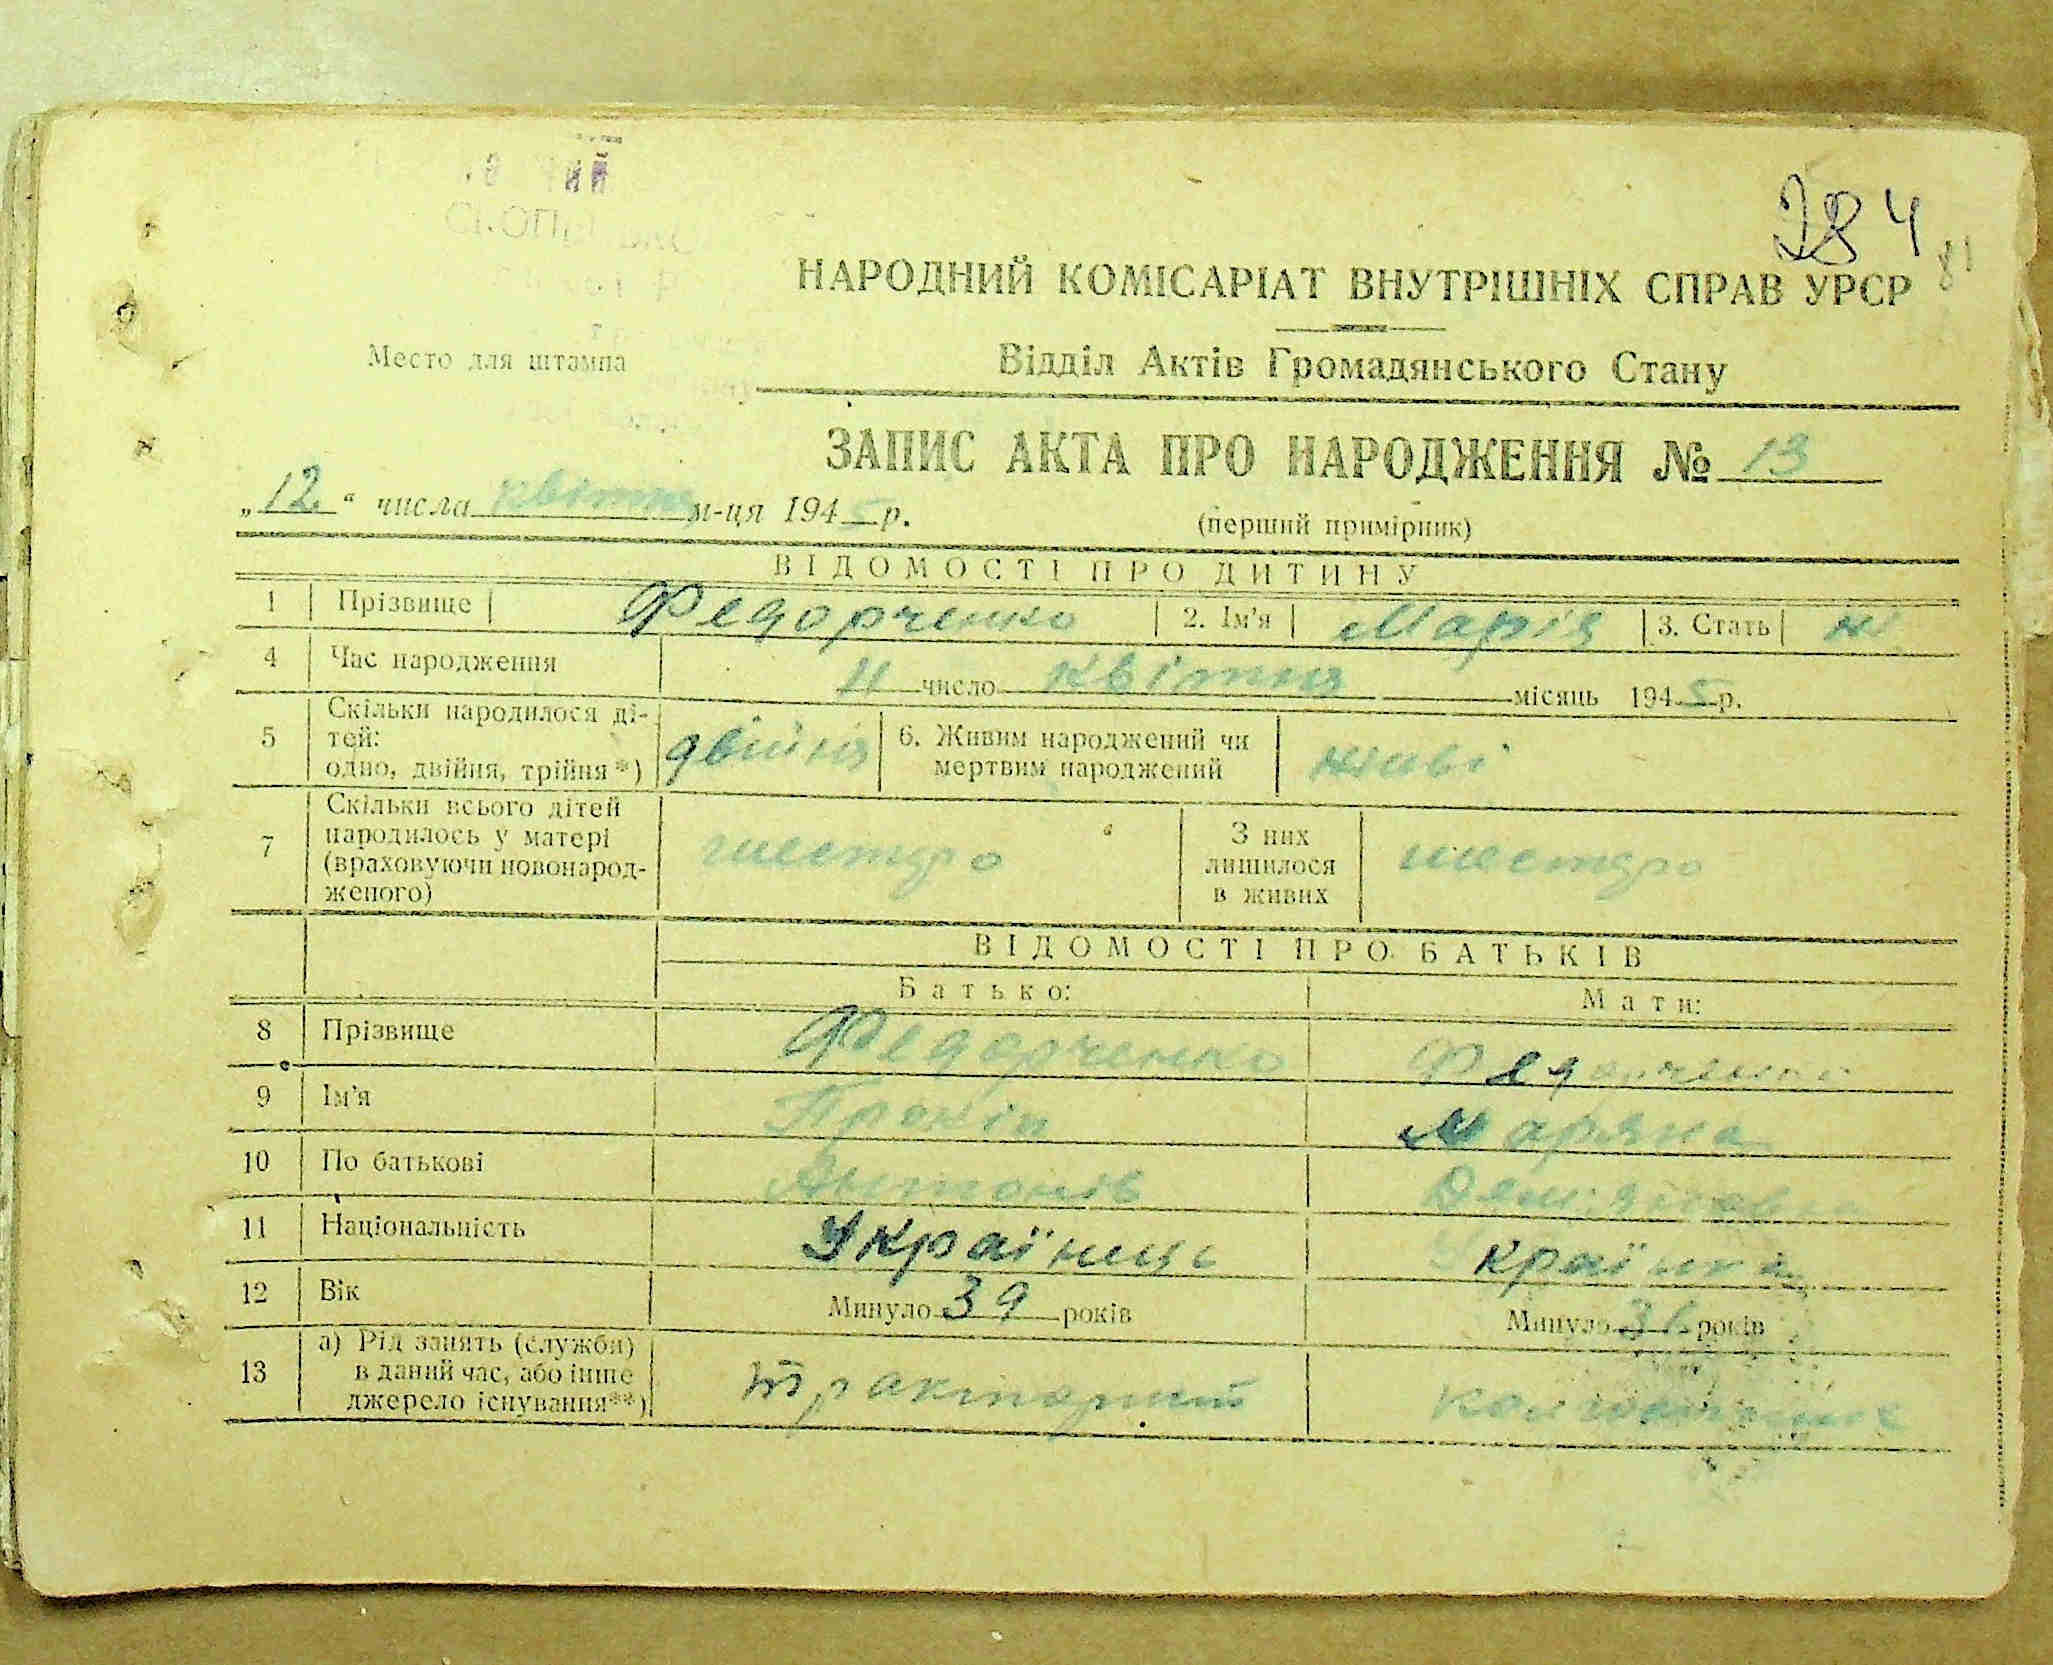 284
81
НАРОДНИЙ КОМІСАРІАТ ВНУТРІШНІХ СПРАВ УРСР
Место для штампа
Відділ Актів Громадянського Стану
ЗАПИС АКТА ПРО НАРОДЖЕННЯ № 13
„12" числа квітня м-ця 1945 р.
(перший примірник)
ВІДОМОСТІ ПРО ДИТИНУ
1 Прізвище Федорченко 2. Ім'я Марія 3. Стать ж
4 Час народження 11 число квітня місяць 1945 р.
5 Скільки народилося ді-
тей:
одно, двійня, трійня*) двійня 6. Живим народжений чи
мертвим народжений живі
7 Скільки всього дітей
народилось у матері
(враховуючи новонарод-
женого) шестеро З них
лишилося
в живих шестеро
ВІДОМОСТІ ПРО БАТЬКІВ
Батько: Мати:
8 Прізвище Федорченко Федорченко
9 Ім'я Прокіп Маряна
10 По батькові Антонів
11 Національність Українець Українка
12 Вік Минуло 39 років Минуло 31 років
13 а) Рід занять (служби)
в даний час, або інше
джерело існування**) тракторист колгоспниця